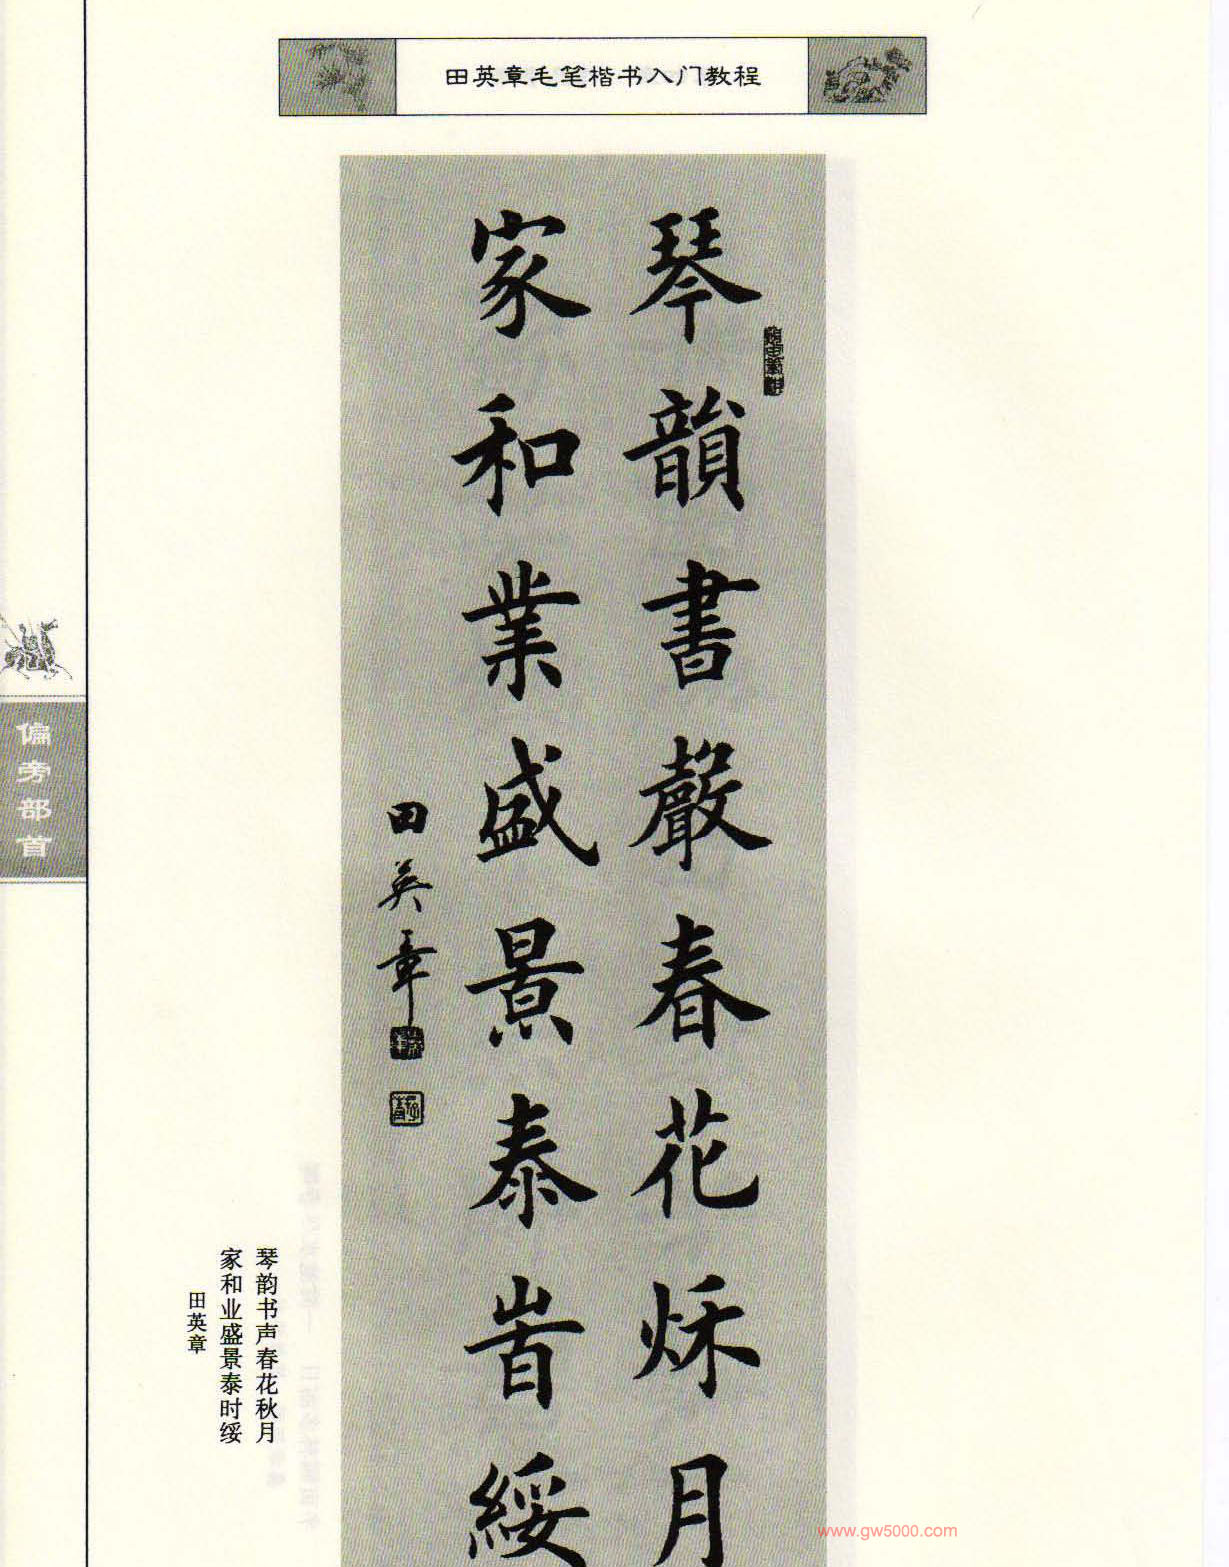 田英章毛笔楷书入门教程
琴韻書聲春花秌月
家和業盛景泰旹綏
田英章
偏旁部首
琴韵书声春花秋月
家和业盛景泰时绥
田英章
www.gw5000.com